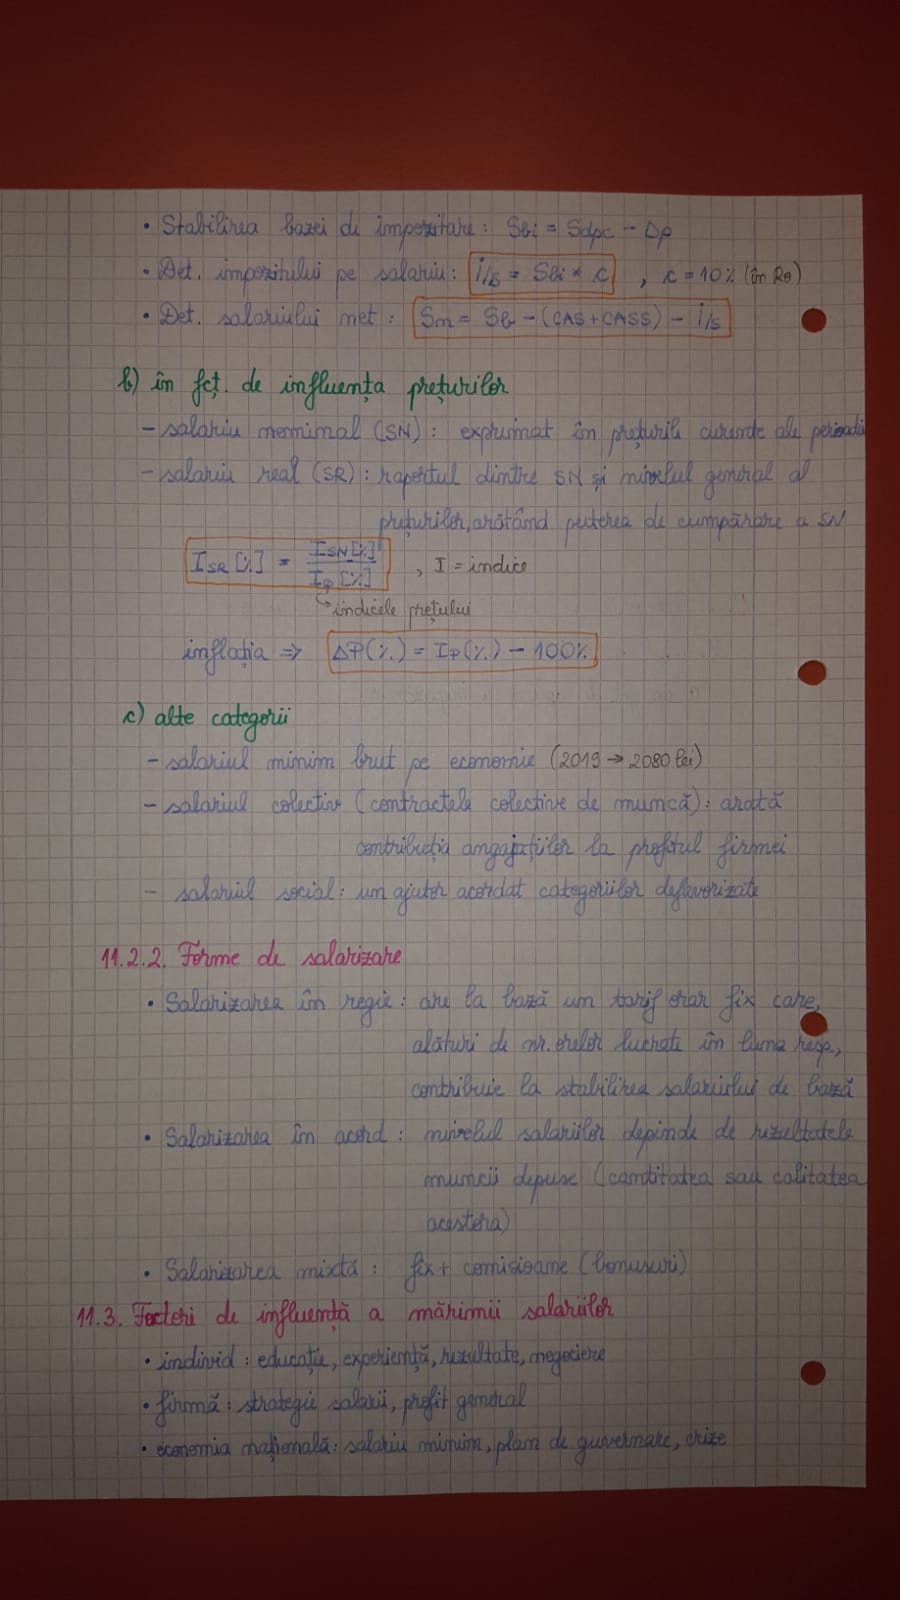 • Stabilirea bazei de impozitare : Sbi = Sdpc - Dp
• Det. impozitului pe salariu : i/s = Sbi * c , c = 10% (în Ro)
• Det. salariului net : Sn = Sb - (CAS + CASS) - i/s
b) în fcț. de influența prețurilor
- salariu nominal (SN) : exprimat în prețurile curente ale perioadei
- salariu real (SR) : raportul dintre SN și nivelul general al
prețurilor, arătând puterea de cumpărare a SN
I SR [%] = I SN [%] / I P [%] , I = indice
↳ indicele prețului
inflația => ΔP(%) = IP(%) - 100%
c) alte categorii
- salariul minim brut pe economie (2019 → 2080 lei)
- salariul colectiv (contractele colective de muncă) : arată
contribuția angajaților la profitul firmei
- salariul social : un ajutor acordat categoriilor defavorizate
11.2.2. Forme de salarizare
• Salarizarea în regie : are la bază un tarif orar fix care,
alături de nr. orelor lucrate în luna resp.,
contribuie la stabilirea salariului de bază
• Salarizarea în acord : nivelul salariilor depinde de rezultatele
muncii depuse (cantitatea sau calitatea
acestora)
• Salarizarea mixtă : fix + comisioane (bonusuri)
11.3. Factori de influență a mărimii salariilor
• individ : educație, experiență, rezultate, negociere
• firmă : strategie salarii, profit general
• economia națională : salariu minim, plan de guvernare, crize